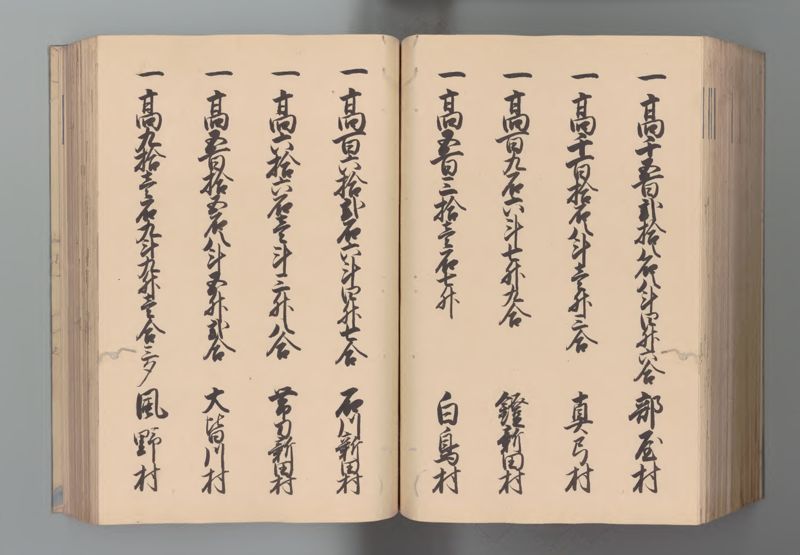 一高千五百弐拾八石八斗四升六合 部屋村
一高千百拾石八斗壱升三合 真弓村
一高百九石六斗七升九合 鐙新田村
一高五百三拾壱石七升 白鳥村
一高百六拾弐石六斗四升七合 石川新田村
一高六拾六石壱斗三升八合 新田村
一高五百拾五石八斗五升弐合 大皆川村
一高九拾壱石九斗九升壱合三夕 風野村